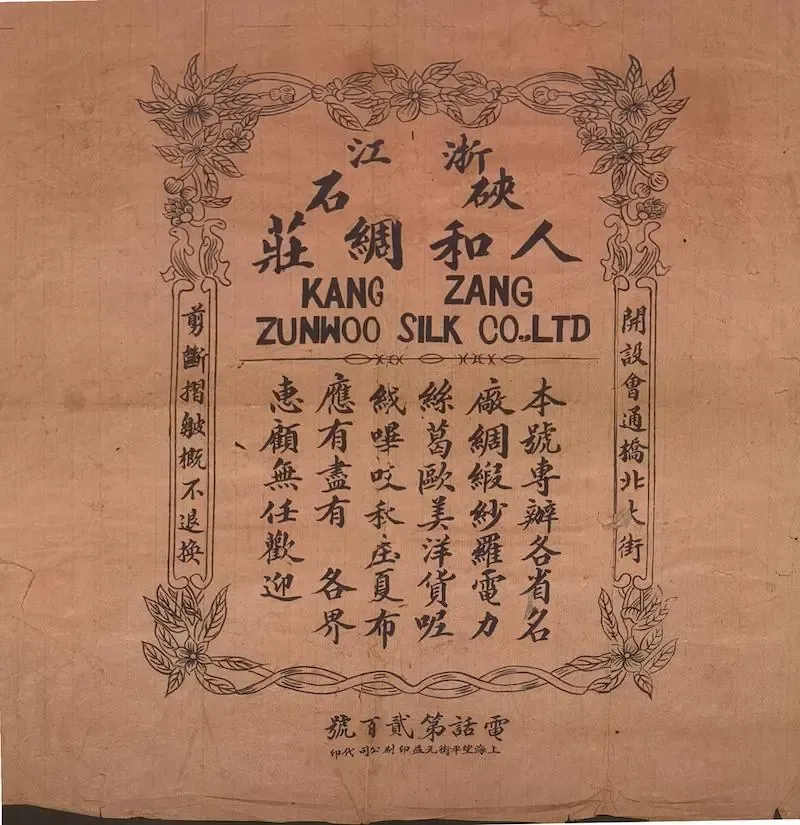 浙江
硤石
人和綢莊
KANG ZANG
ZUNWOO SILK CO.,LTD
開設會通橋北大街
本號專辦各省名
廠綢緞紗羅電力
絲葛歐美洋貨呢
絨嗶吱秋庄夏布
應有盡有 各界
惠顧無任歡迎
剪斷摺皺概不退換
電話第貳百號
上海望平街元益印刷公司代印